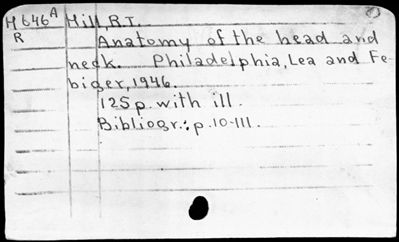 H646A Hill, R.T.
R Anatomy of the head and
neck. Philadelphia, Lea and Fe-
biger, 1946.
125 p. with ill.
Bibliogr.: p. 10-111.